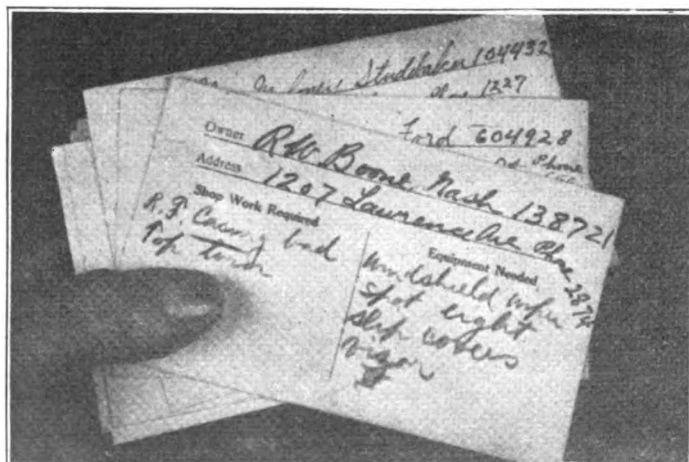 Studebaker 104432
Phone 1227
Ford 604928
Phone
Owner RW Boone Nash 138721
Address 1207 Lawrence Ave Phone 2874
Shop Work Required
R.F. Casing bad
Top torn
Equipment Needed
Windshield wiper
spot light
slip covers
visor